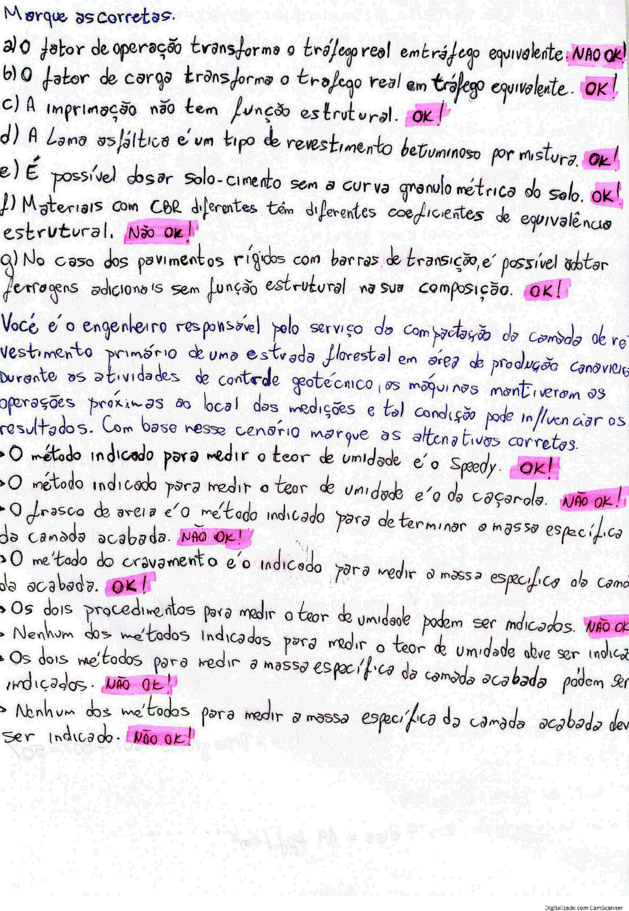 Marque as corretas.
a) O fator de operação transforma o tráfego real em tráfego equivalente. NÃO OK!
b) O fator de carga transforma o trafego real em tráfego equivalente. OK!
c) A imprimação não tem função estrutural. OK!
d) A Lama asfáltica é um tipo de revestimento betuminoso por mistura. OK!
e) É possível dosar solo-cimento sem a curva granulométrica do solo. OK!
f) Materiais com CBR diferentes têm diferentes coeficientes de equivalência
estrutural. Não OK!
g) No caso dos pavimentos rígidos com barras de transição, é possível adotar
ferragens adicionais sem função estrutural na sua composição. OK!
Você é o engenheiro responsável pelo serviço da compactação da camada de re
vestimento primário de uma estrada florestal em área de produção canavieir
Durante as atividades de controle geotécnico, as máquinas mantiveram as
operações próximas ao local das medições e tal condição pode influenciar os
resultados. Com base nesse cenário marque as altenativas corretas.
• O método indicado para medir o teor de umidade é o Speedy. OK!
• O método indicado para medir o teor de umidade é o da caçarola. NÃO OK!
• O frasco de areia é o método indicado para determinar a massa específica
da camada acabada. NÃO OK!
• O método do cravamento é o indicado para medir a massa especifica da cama
da acabada. OK!
• Os dois procedimentos para medir o teor de umidade podem ser indicados. NÃO OK
• Nenhum dos métodos indicados para medir o teor de umidade deve ser indica
• Os dois métodos para medir a massa específica da camada acabada podem ser
indicados. NÃO OK!
• Nenhum dos métodos para medir a massa específica da camada acabada dev
ser indicado. NÃO OK!
Digitalizado com CamScanner